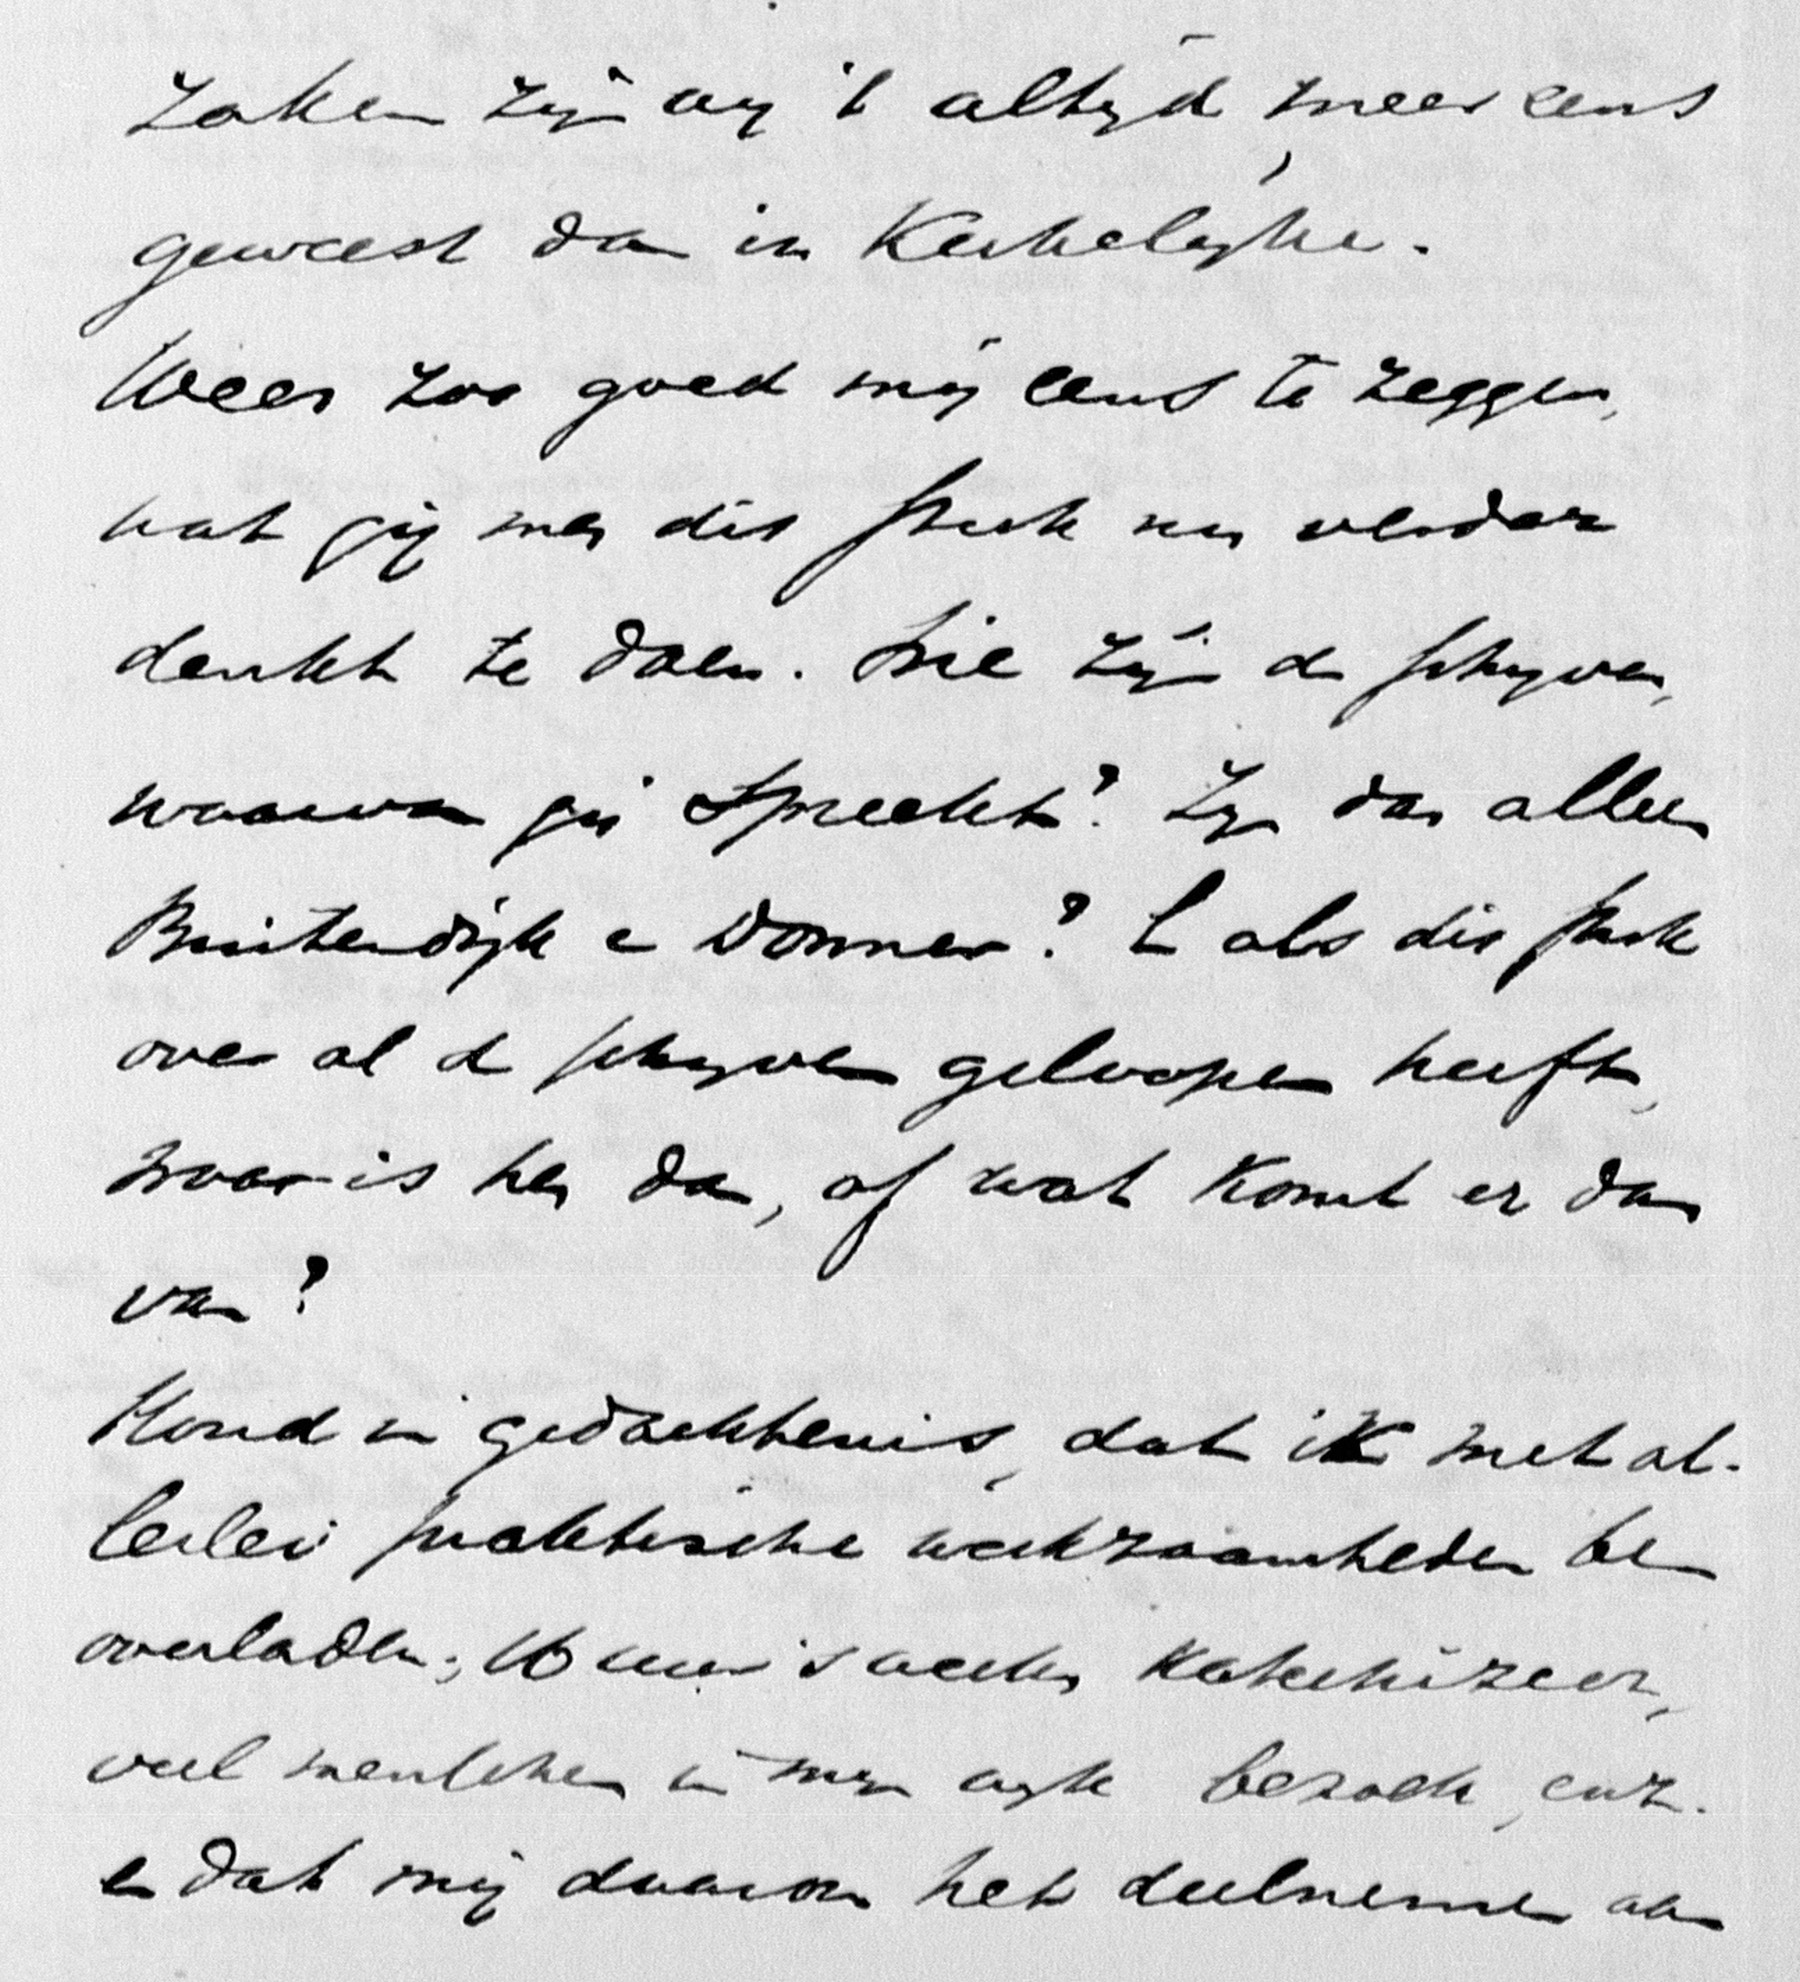 zaken zijn wij 't altijd meer eens
geweest dan in Kerkelijke.
Wees zoo goed mij eens te zeggen,
wat gij met dit stuk nu verder
denkt te doen. Wie zijn de schijven,
waarvan gij spreekt? Zijn dat alleen
Buitendijk en Donner? En als dit stuk
over al de schijven geloopen heeft,
waar is het dan, of wat komt er dan
van?
Houd in gedachtenis, dat ik met al-
lerlei praktische werkzaamheden ben
overladen; uur 's weeks katechizeer,
veel menschen in mijn wijk bezoek, enz.
en dat mij daarom het deelnemen aan